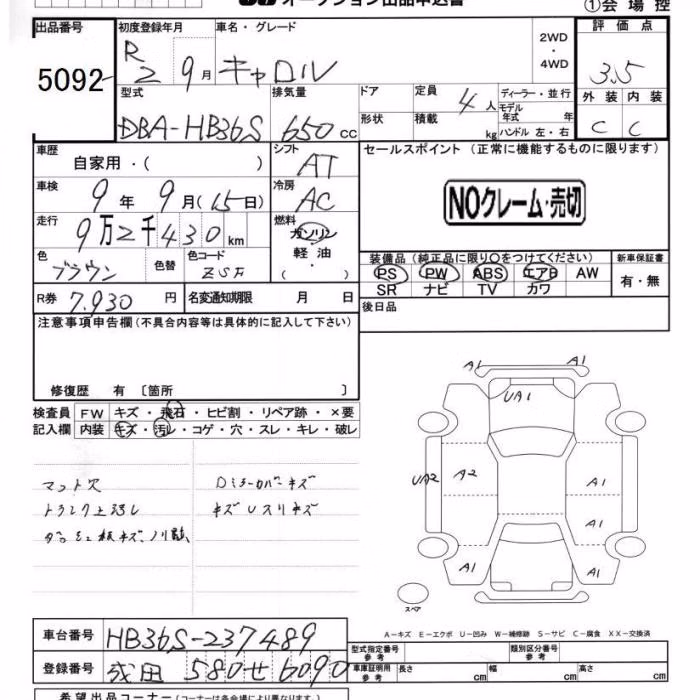 オークション出品申込書
①会場控
出品番号 5092
初度登録年月 R2 9月
車名・グレード キャロル
2WD・4WD
評価点 3.5
外装 C 内装 C
型式 DBA-HB36S
排気量 650cc
ドア
形状
定員 4人
積載 kg
ディーラー・並行
モデル年式 年
ハンドル 左・右
車歴 自家用・( )
シフト AT
セールスポイント(正常に機能するものに限ります)
NOクレーム・売切
車検 9年 9月(15日)
冷房 AC
走行 9万2千430km
燃料 ガソリン・軽油・( )
色 ブラウン
色替
色コード ZSF
装備品(純正品に限り〇をつけてください)
PS PW ABS エアB AW
SR ナビ TV カワ
新車保証書 有・無
R券 7,930円
名変通知期限 月 日
後日品
注意事項申告欄(不具合内容等は具体的に記入して下さい)
修復歴 有 〔箇所 〕
検査員記入欄
FW キズ・飛石・ヒビ割・リペア跡・×要
内装 キズ・汚レ・コゲ・穴・スレ・キレ・破レ
マット穴
Dミラーカバーキズ
キズUスリキズ
A1 A1
UA1
UA2 A2 A1
A1
A1 A1
スペア
A-キズ E-エクボ U-凹み W-補修跡 S-サビ C-腐食 XX-交換済
車台番号 HB36S-237489
登録番号 成田 580 せ 6090
型式指定番号参考
類別区分番号参考
車庫証明用参考 長さ cm 幅 cm 高さ cm
希望出品コーナー(コーナーは各会場により異なります。)